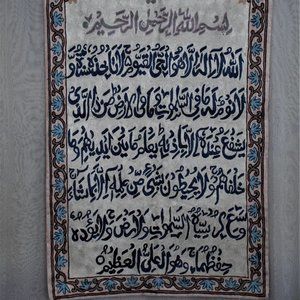 بسم الله الرحمن الرحيم
الله لا اله الا هو الحي القيوم لا تاخذه سنة و
لا نوم له ما في السموت وما في الارض من ذا الذي
يشفع عنده الا باذنه يعلم ما بين ايديهم وما
خلفهم ولا يحيطون بشئ من علمه الا بما شاء
وسع كرسيه السموت والارض ولا يؤده
حفظهما وهو العلي العظيم